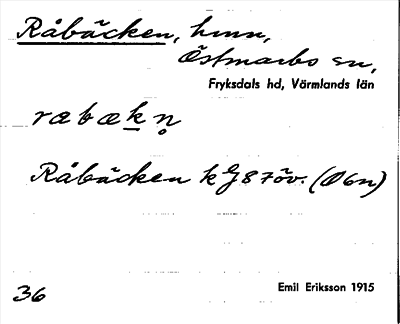 Råbäcken, hmn,
Östmarks sn,
Fryksdals hd, Värmlands län
rabækn̥
Råbäcken k 87öv. (Obn)
36
Emil Eriksson 1915